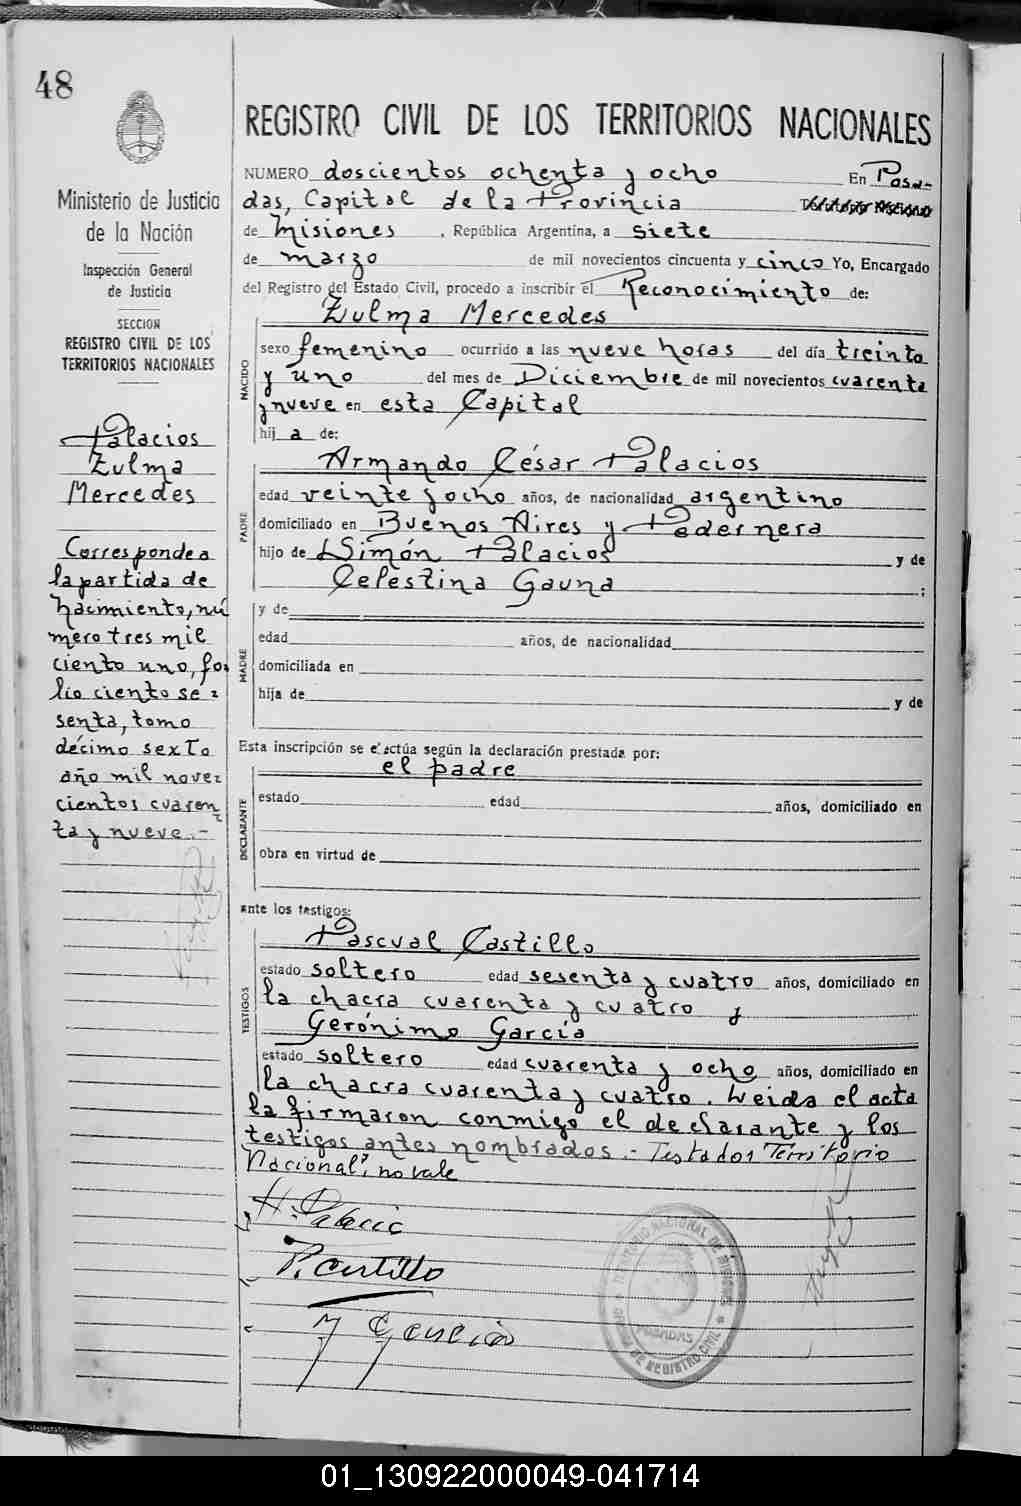 48
REGISTRO CIVIL DE LOS TERRITORIOS NACIONALES
Ministerio de Justicia
de la Nación
Inspección General
de Justicia
SECCION
REGISTRO CIVIL DE LOS
TERRITORIOS NACIONALES
Palacios
Zulma
Mercedes
Corresponde a
la partida de
nacimiento, nú
mero tres mil
ciento uno, fo-
lio ciento se=
senta, tomo
décimo sexto
año mil nove=
cientos cuaren
ta y nueve.-
NUMERO doscientos ochenta y ocho En Posa-
das, Capital de la Provincia
de Misiones, República Argentina, a siete
de marzo de mil novecientos cincuenta y cinco Yo, Encargado
del Registro del Estado Civil, procedo a inscribir el Reconocimiento de:
NACIDO
Zulma Mercedes
sexo femenino ocurrido a las nueve horas del día treinta
y uno del mes de Diciembre de mil novecientos cuarenta
y nueve en esta Capital
hij a de:
PADRE
Armando César Palacios
edad veinte y ocho años, de nacionalidad argentino
domiciliado en Buenos Aires y Pedernera
hijo de Simón Palacios y de
Celestina Gauna ;
MADRE
y de
edad años, de nacionalidad
domiciliada en
hija de y de
Esta inscripción se efectúa según la declaración prestada por:
DECLARANTE
el padre
estado edad años, domiciliado en
obra en virtud de
ante los testigos:
TESTIGOS
Pascual Castillo
estado soltero edad sesenta y cuatro años, domiciliado en
la chacra cuarenta y cuatro y
Gerónimo García
estado soltero edad cuarenta y ocho años, domiciliado en
la chacra cuarenta y cuatro. Leida el acta
la firmaron conmigo el declarante y los
testigos antes nombrados.- Testados "Territorio
Nacional", no vale
A. Palacio
P. Castillo
TERRITORIO NACIONAL DE MISIONES
POSADAS
DE REGISTRO CIVIL
01_130922000049-041714